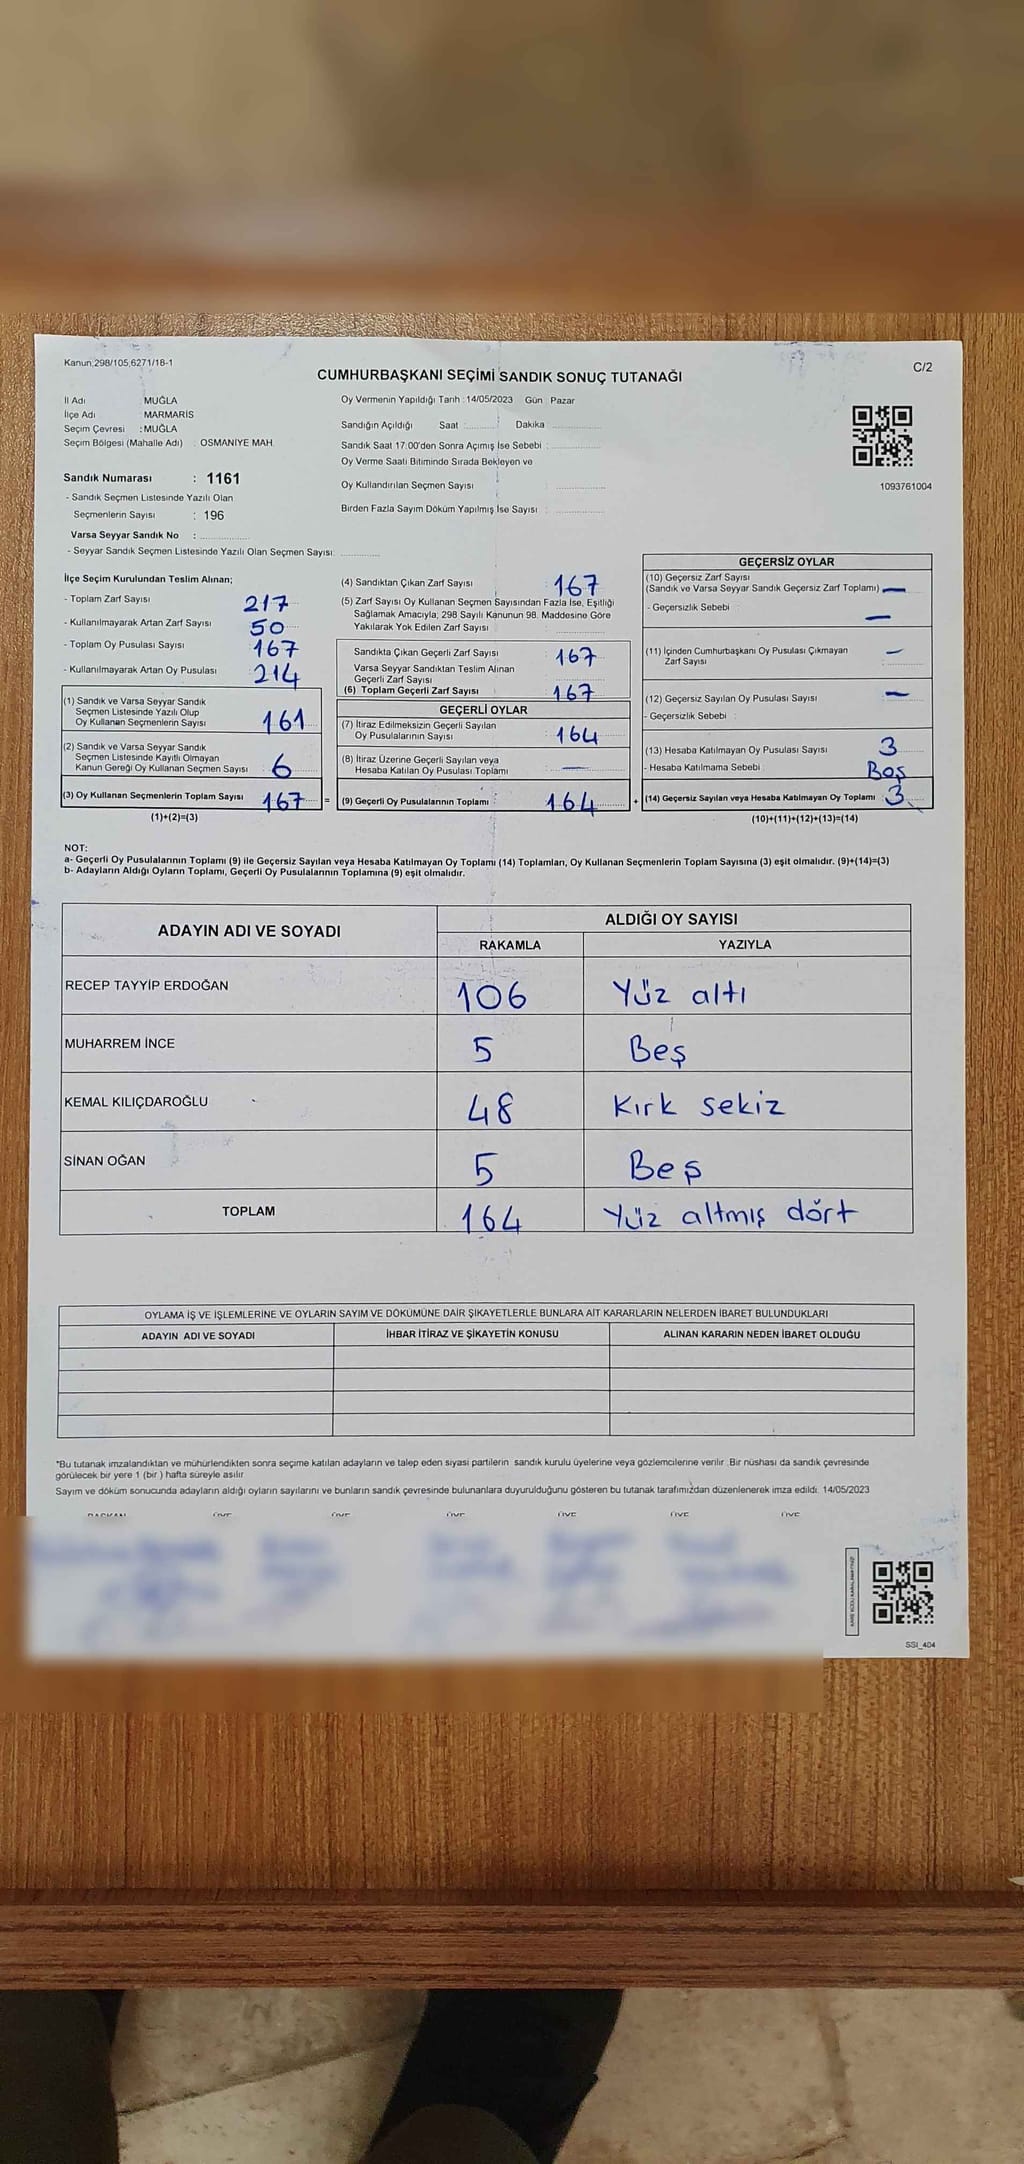 Kanun.298/105,6271/18-1
C/2
CUMHURBAŞKANI SEÇİMİ SANDIK SONUÇ TUTANAĞI
İl Adı MUĞLA
İlçe Adı MARMARİS
Seçim Çevresi : MUĞLA
Seçim Bölgesi (Mahalle Adı) : OSMANİYE MAH.
Oy Vermenin Yapıldığı Tarih : 14/05/2023 Gün : Pazar
Sandığın Açıldığı Saat : Dakika :
Sandık Saat 17:00'den Sonra Açımış İse Sebebi :
Oy Verme Saati Bitiminde Sırada Bekleyen ve
Oy Kullandırılan Seçmen Sayısı :
Birden Fazla Sayım Döküm Yapılmış İse Sayısı :
1093761004
Sandık Numarası : 1161
- Sandık Seçmen Listesinde Yazılı Olan
Seçmenlerin Sayısı : 196
Varsa Seyyar Sandık No :
- Seyyar Sandık Seçmen Listesinde Yazılı Olan Seçmen Sayısı:
İlçe Seçim Kurulundan Teslim Alınan;
- Toplam Zarf Sayısı 217
- Kullanılmayarak Artan Zarf Sayısı 50
- Toplam Oy Pusulası Sayısı 167
- Kullanılmayarak Artan Oy Pusulası 214
(1) Sandık ve Varsa Seyyar Sandık
Seçmen Listesinde Yazılı Olup
Oy Kullanan Seçmenlerin Sayısı 161
(2) Sandık ve Varsa Seyyar Sandık
Seçmen Listesinde Kayıtlı Olmayan
Kanun Gereği Oy Kullanan Seçmen Sayısı 6
(3) Oy Kullanan Seçmenlerin Toplam Sayısı 167 =
(1)+(2)=(3)
(4) Sandıktan Çıkan Zarf Sayısı : 167
(5) Zarf Sayısı Oy Kullanan Seçmen Sayısından Fazla İse, Eşitliği
Sağlamak Amacıyla, 298 Sayılı Kanunun 98. Maddesine Göre
Yakılarak Yok Edilen Zarf Sayısı :
Sandıkta Çıkan Geçerli Zarf Sayısı : 167
Varsa Seyyar Sandıktan Teslim Alınan
Geçerli Zarf Sayısı :
(6) Toplam Geçerli Zarf Sayısı : 167
GEÇERLİ OYLAR
(7) İtiraz Edilmeksizin Geçerli Sayılan
Oy Pusulalarının Sayısı : 164
(8) İtiraz Üzerine Geçerli Sayılan veya
Hesaba Katılan Oy Pusulası Toplamı : —
(9) Geçerli Oy Pusulalarının Toplamı : 164 +
GEÇERSİZ OYLAR
(10) Geçersiz Zarf Sayısı
(Sandık ve Varsa Seyyar Sandık Geçersiz Zarf Toplamı) —
- Geçersizlik Sebebi : —
(11) İçinden Cumhurbaşkanı Oy Pusulası Çıkmayan —
Zarf Sayısı
(12) Geçersiz Sayılan Oy Pusulası Sayısı : —
- Geçersizlik Sebebi :
(13) Hesaba Katılmayan Oy Pusulası Sayısı : 3
- Hesaba Katılmama Sebebi : Boş
(14) Geçersiz Sayılan veya Hesaba Katılmayan Oy Toplamı : 3
(10)+(11)+(12)+(13)=(14)
NOT:
a- Geçerli Oy Pusulalarının Toplamı (9) ile Geçersiz Sayılan veya Hesaba Katılmayan Oy Toplamı (14) Toplamları, Oy Kullanan Seçmenlerin Toplam Sayısına (3) eşit olmalıdır. (9)+(14)=(3)
b- Adayların Aldığı Oyların Toplamı, Geçerli Oy Pusulalarının Toplamına (9) eşit olmalıdır.
ADAYIN ADI VE SOYADI ALDIĞI OY SAYISI
RAKAMLA YAZIYLA
RECEP TAYYİP ERDOĞAN 106 Yüz altı
MUHARREM İNCE 5 Beş
KEMAL KILIÇDAROĞLU 48 Kırk sekiz
SİNAN OĞAN 5 Beş
TOPLAM 164 Yüz altmış dört
OYLAMA İŞ VE İŞLEMLERİNE VE OYLARIN SAYIM VE DÖKÜMÜNE DAİR ŞİKAYETLERLE BUNLARA AİT KARARLARIN NELERDEN İBARET BULUNDUKLARI
ADAYIN ADI VE SOYADI İHBAR İTİRAZ VE ŞİKAYETİN KONUSU ALINAN KARARIN NEDEN İBARET OLDUĞU
*Bu tutanak imzalandıktan ve mühürlendikten sonra seçime katılan adayların ve talep eden siyasi partilerin sandık kurulu üyelerine veya gözlemcilerine verilir .Bir nüshası da sandık çevresinde
görülecek bir yere 1 (bir ) hafta süreyle asılır
Sayım ve döküm sonucunda adayların aldığı oyların sayılarını ve bunların sandık çevresinde bulunanlara duyurulduğunu gösteren bu tutanak tarafımızdan düzenlenerek imza edildi. 14/05/2023
SSI_404